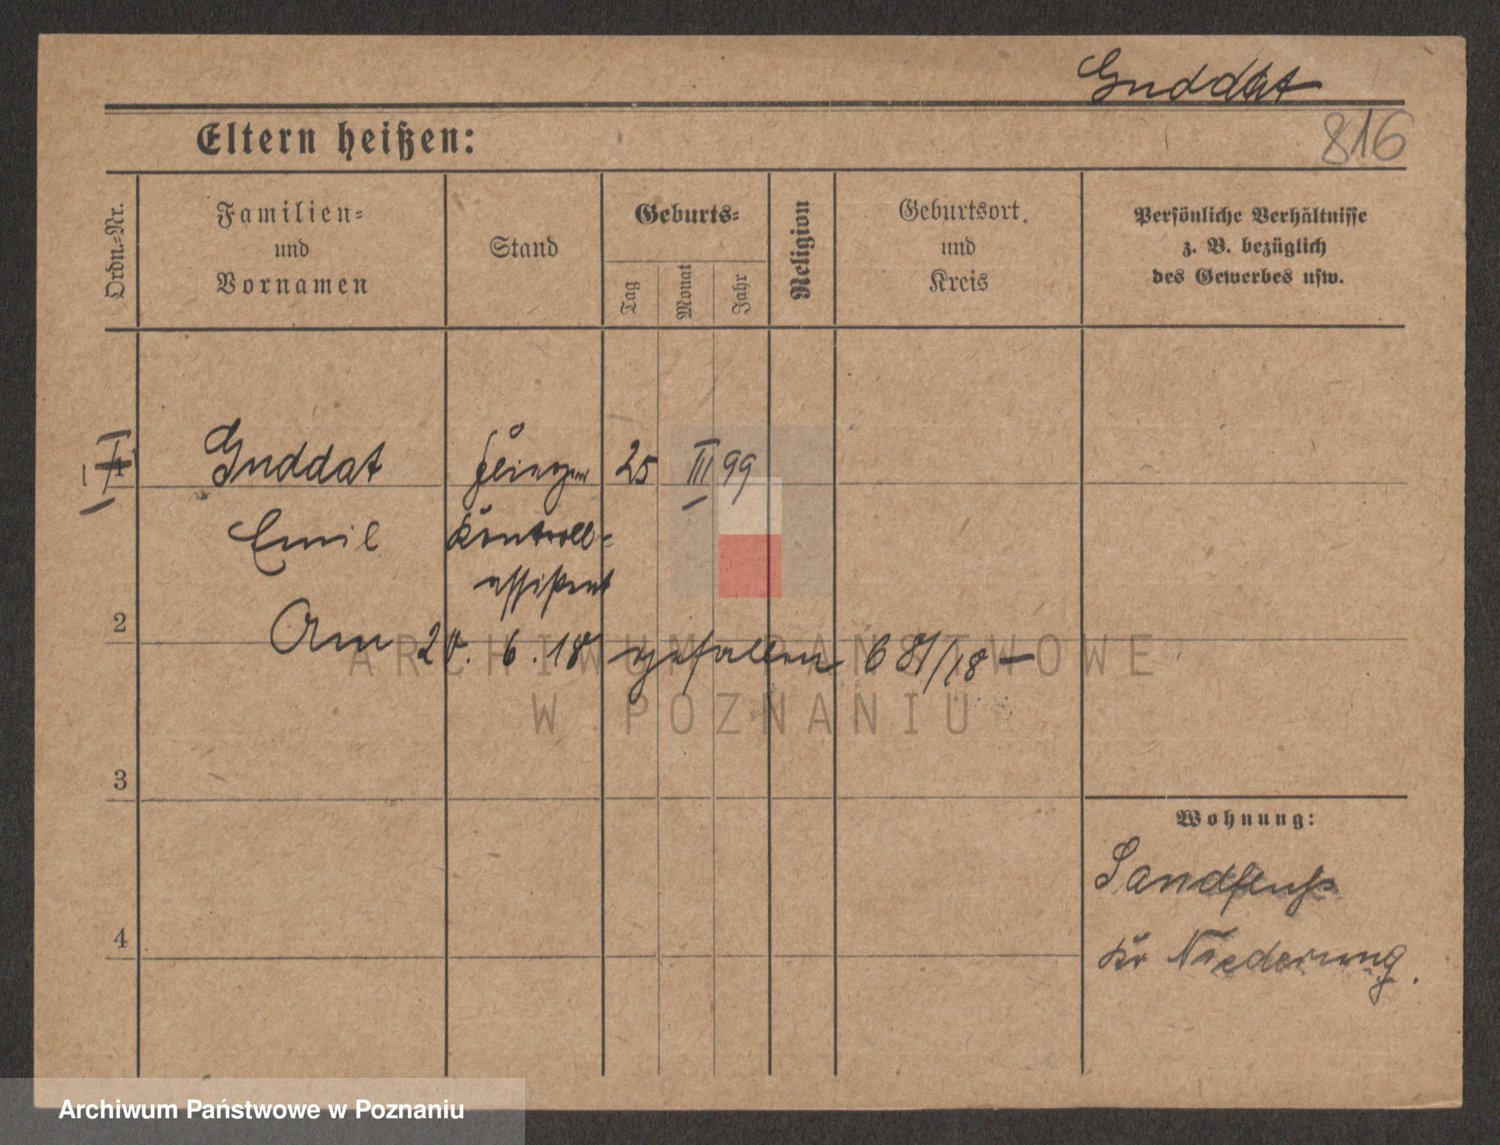 Guddat
Eltern heißen:
816
Ordn.=Nr.
Familien=
und
Vornamen
Stand
Geburts=
Tag
Monat
Jahr
Religion
Geburtsort
und
Kreis
Persönliche Verhältnisse
z. B. bezüglich
des Gewerbes usw.
Guddat
Flieger
25
III
99
Emil
Kontroll=
assistent
2
Am 6.18 gefallen 681/18 —
ARCHIWUM PAŃSTWOWE
W POZNANIU
3
Wohnung:
Sandfluß
4
Kr Niederung.
Archiwum Państwowe w Poznaniu